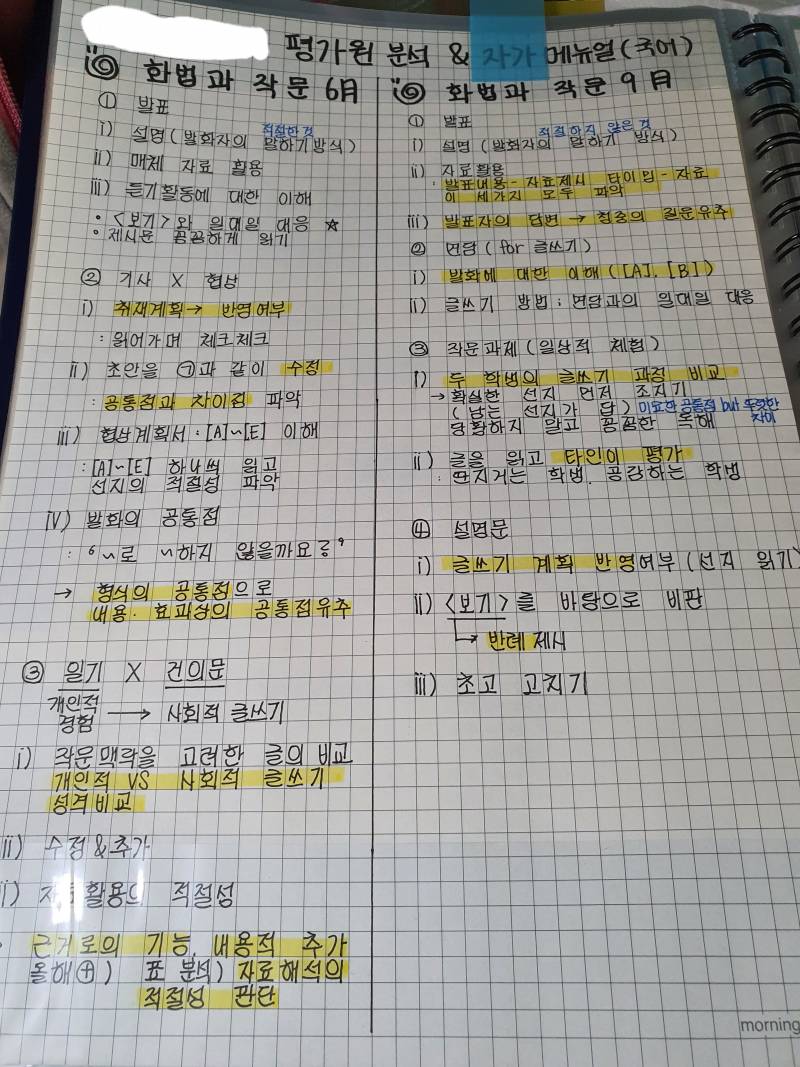 평가원 분석 & 자가 메뉴얼(국어)
화법과 작문 6月
① 발표
적절한 것
i) 설명(발화자의 말하기방식)
ii) 매체 자료 활용
iii) 듣기활동에 대한 이해
• <보기>와 일대일 대응 ☆
• 제시문 꼼꼼하게 읽기
② 기사 X 협상
i) 취재계획→ 반영여부
: 읽어가며 체크체크
ii) 초안을 ㉠과 같이 수정
: 공통점과 차이점 파악
iii) 협상계획서 : [A]~[E] 이해
: [A]~[E] 하나씩 읽고
선지의 적절성 파악
iv) 발화의 공통점
: "~로 ~하지 않을까요?"
→ 형식의 공통점으로
내용·효과상의 공통점유추
③ 일기 X 건의문
개인적 경험 → 사회적 글쓰기
i) 작문맥락을 고려한 글의 비교
개인적 VS 사회적 글쓰기
성격비교
ii) 수정&추가
활용의 적절성
근거로의 기능, 내용적 추가
올해⊕) 표 분석) 자료해석의
적절성 판단
화법과 작문 9月
① 발표
적절하지 않은 것
i) 설명(발화자의 말하기 방식)
ii) 자료활용
: 발표내용-자료제시 타이밍-자료
이 세가지 모두 파악
iii) 발표자의 답변 → 청중의 질문유추
② 면담(for 글쓰기)
i) 발화에 대한 이해([A], [B])
ii) 글쓰기 방법 : 면담과의 일대일 대응
③ 작문과제(일상적 체험)
i) 두 학생의 글쓰기 과정 비교
→ 확실한 선지 먼저 조지기
(남는 선지가 답) 미묘한 공통점 but 뚜렷한 차이
당황하지 말고 꼼꼼한 독해
ii) 글을 읽고 타인이 평가
: 딴지거는 학생, 공감하는 학생
④ 설명문
i) 글쓰기 계획 반영여부(선지 읽기)
ii) <보기>를 바탕으로 비판
→ 반례 제시
iii) 초고 고치기
morning